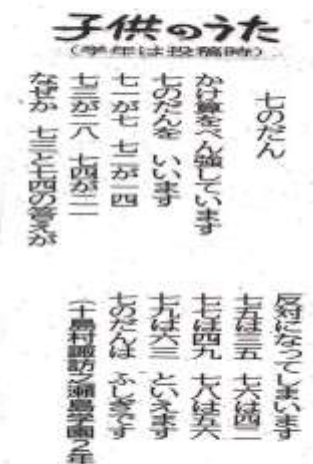 子供のうた
(学年は投稿時)
七のだん
かけ算をべん強しています
七のだんを いいます
七一が七 七二が一四
七三が二八 七四が二一
なぜか 七三と七四の答えが
反対になってしまいます
七五は三五 七六は四二
七七は四九 七八は五六
七九は六三 といえます
七のだんは ふしぎです
(十島村諏訪之瀬島学園2年